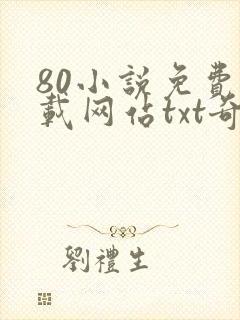 80小説免費
載网佔txt奇
劉禮生